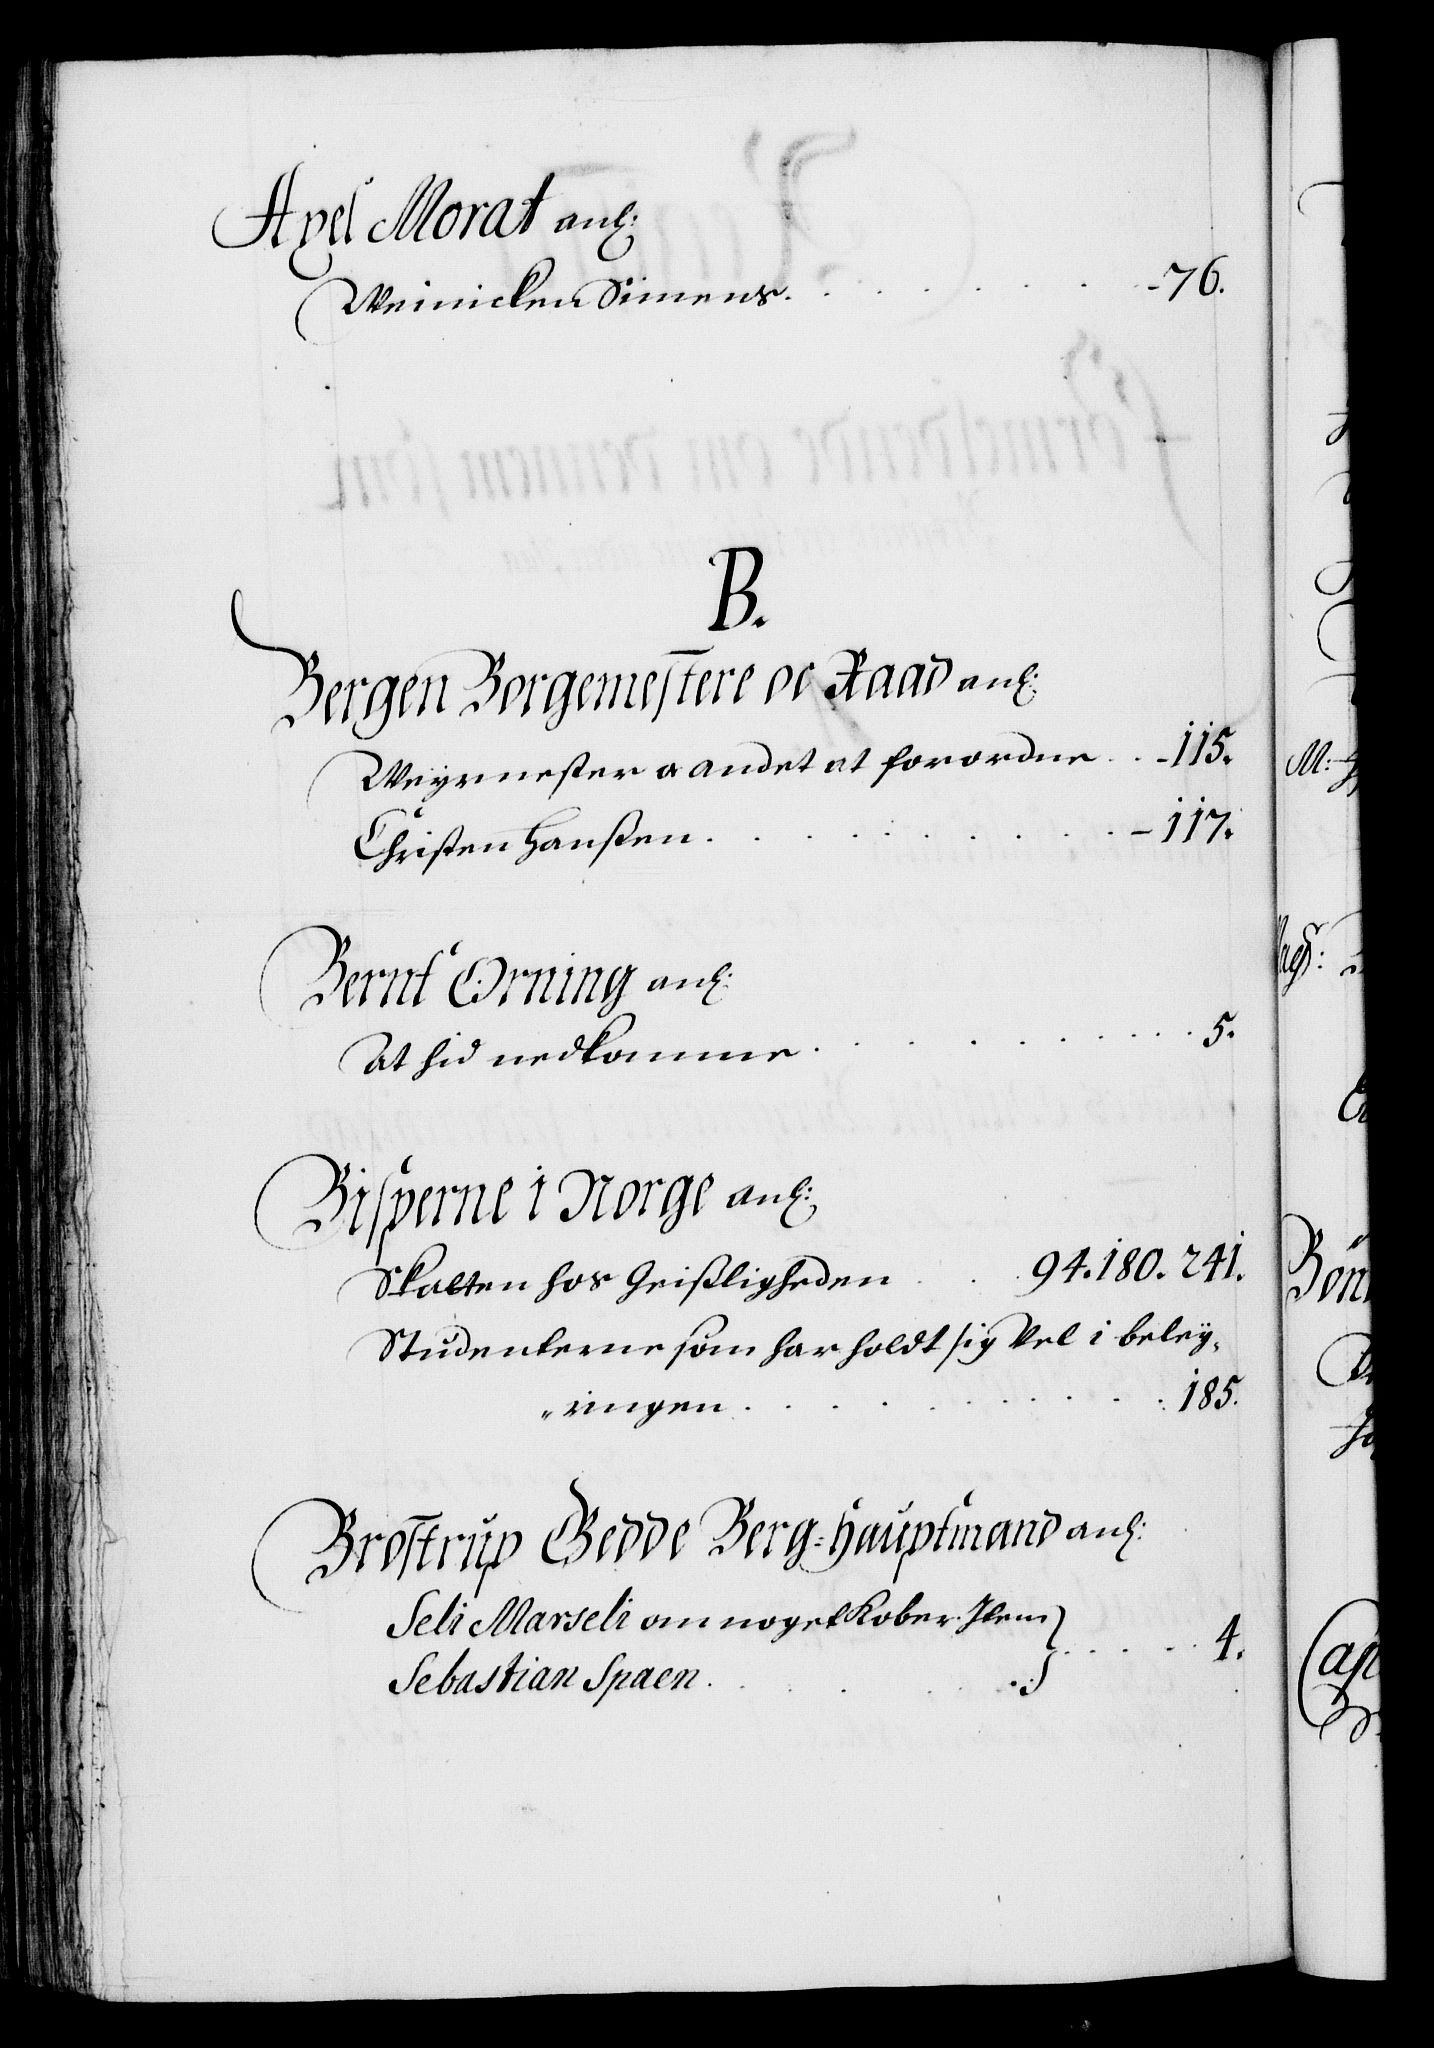 Axel Morat anl:
Weinicken Simens. . . . . . . . -76.
B.
Bergen Borgemestere oc Raad anl:
Weyrmester oc andet at forordne . . -115.
Christen Hanßen. . . . . . . . . -117.
Bernt Orning anl:
At hid nedkomme . . . . . . . . 5.
Bisperne i Norge anl:
Skatten hos Geistligheden . . . 94. 180. 241.
Studenterne som har holdt sig vel i beley,
„ringen . . . . . . . . . 185.
Brostrup Gedde Berg=Hauptmand anl:
Seli Marseli om noget Kober. Item
Sebastian Spaen. . . . . . . . . . 4.